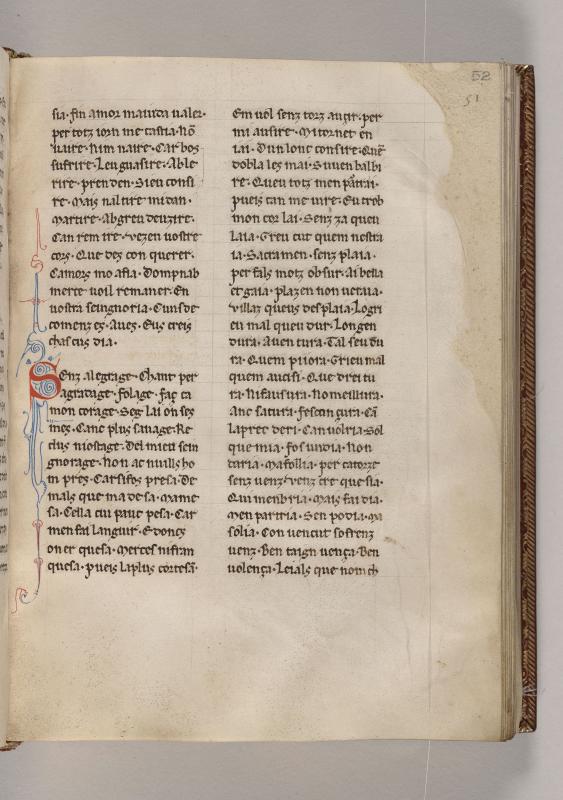 52
51
sia. fin amor mauida ualer.
per totz iorn me castia. nō
uaire. Nim naire. Car bos
sufrire. Len guasire. Able
rire. prenden. Sieu consi
re. Mais naltire mi dan.
Martire. Abgreu deuzire.
Can rem ire. vezen uostre
cors. Que dez con querer.
Camors mo afia. Dompnab
merce uoil remaner. En
uostra seingnoria. Cuns de
comenz es. Aues. Eus creis
chascus dia.
Senz alegrage. Chant per
agradage. folage. faç ca
mon corage. Seg lai on sez
mes. Canc plus sauage. Re
clus niostage. Del mieu sein
gnorage. Non ac nuills ho
in pres. Car si fos presa. De
mals que ma desa. Mame
sa. Cella cui pauc pesa. Car
men fai languir. Edoncs
on er quesa. Merces nifran
quesa. pueis la plus cortesā.
Em uol senz torz aucir. per
mi ausire. Mi tornet en
iai. Dun lonc consire. Quē
dobla les mai. Suuen balbi
re. Queu totz men pārai.
pueis can me uire. Eu trob
mon cor lai. Senz za queu
laia. Greu cut quem nestra
ia. Sacramen. senz plaia.
per fals motz obsur. Ai bella
et gaia. plazen non ueraia.
villaz queus desplaia. Logri
eu mal queu dur. Longen
dura. Auen tura. Tal seu du
ra. Quem piiora. Grieu mal
quem aucisi. Que drei tu
ra. Ni fausura. No meillura.
Anc sa cura. fescon çura. Cā
la prec deri. Can uolria. Sol
que mia. fos un dia. Non
daria. Ma follia. per catorze
senz uenz. venz cre que sia.
Qui menbria. Mais fai dia.
Men partria. Sen podia. Ma
solia. Con uencut sofrenz
uenz. Ben taign uença. Ben
uolença. Leials que nom ch